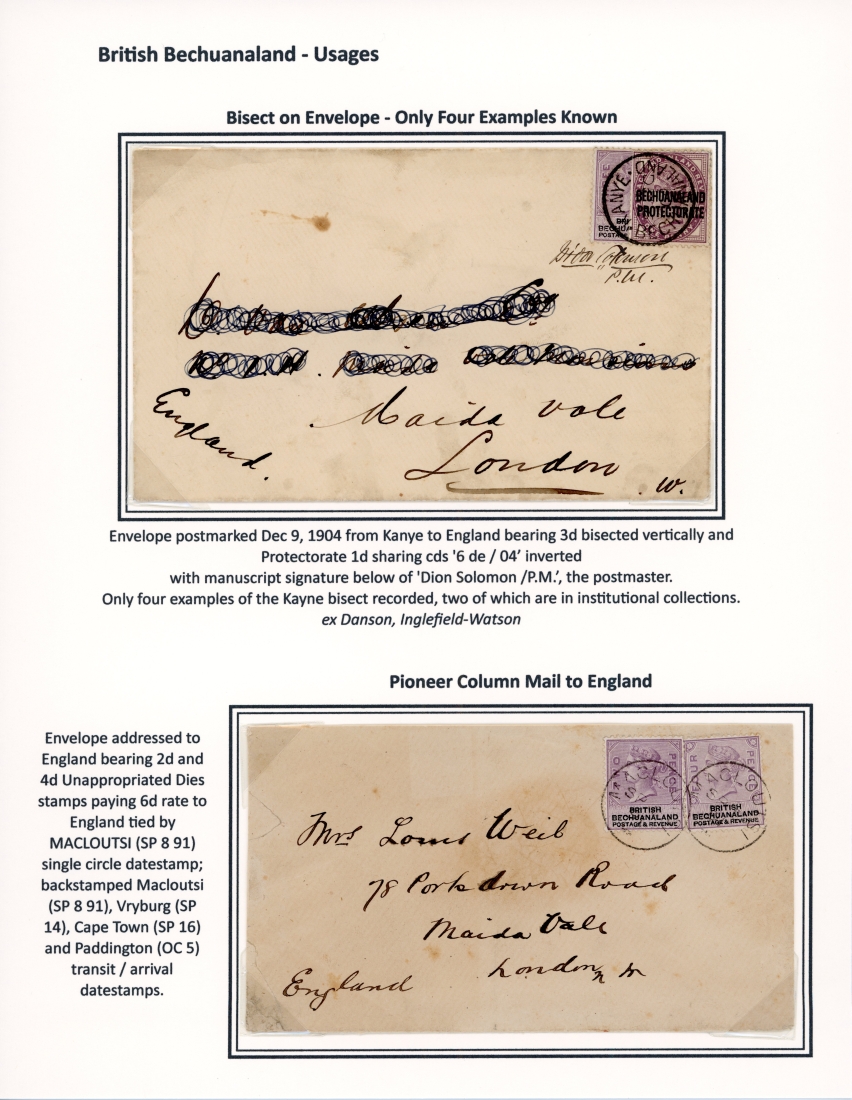 British Bechuanaland - Usages
Bisect on Envelope - Only Four Examples Known
BECHUANALAND
PROTECTORATE
ANYE
BECH
POSTAGE
P.M.
England.
Maida Vale
London
W.
Envelope postmarked Dec 9, 1904 from Kanye to England bearing 3d bisected vertically and
Protectorate 1d sharing cds '6 de / 04' inverted
with manuscript signature below of 'Dion Solomon /P.M.', the postmaster.
Only four examples of the Kayne bisect recorded, two of which are in institutional collections.
ex Danson, Inglefield-Watson
Pioneer Column Mail to England
Envelope addressed to
England bearing 2d and
4d Unappropriated Dies
stamps paying 6d rate to
England tied by
MACLOUTSI (SP 8 91)
single circle datestamp;
backstamped Macloutsi
(SP 8 91), Vryburg (SP
14), Cape Town (SP 16)
and Paddington (OC 5)
transit / arrival
datestamps.
BRITISH
BECHUANALAND
POSTAGE & REVENUE
BRITISH
BECHUANALAND
POSTAGE & REVENUE
Mrs Louis Weil
78 Porkdown Road
Maida Vale
London
England